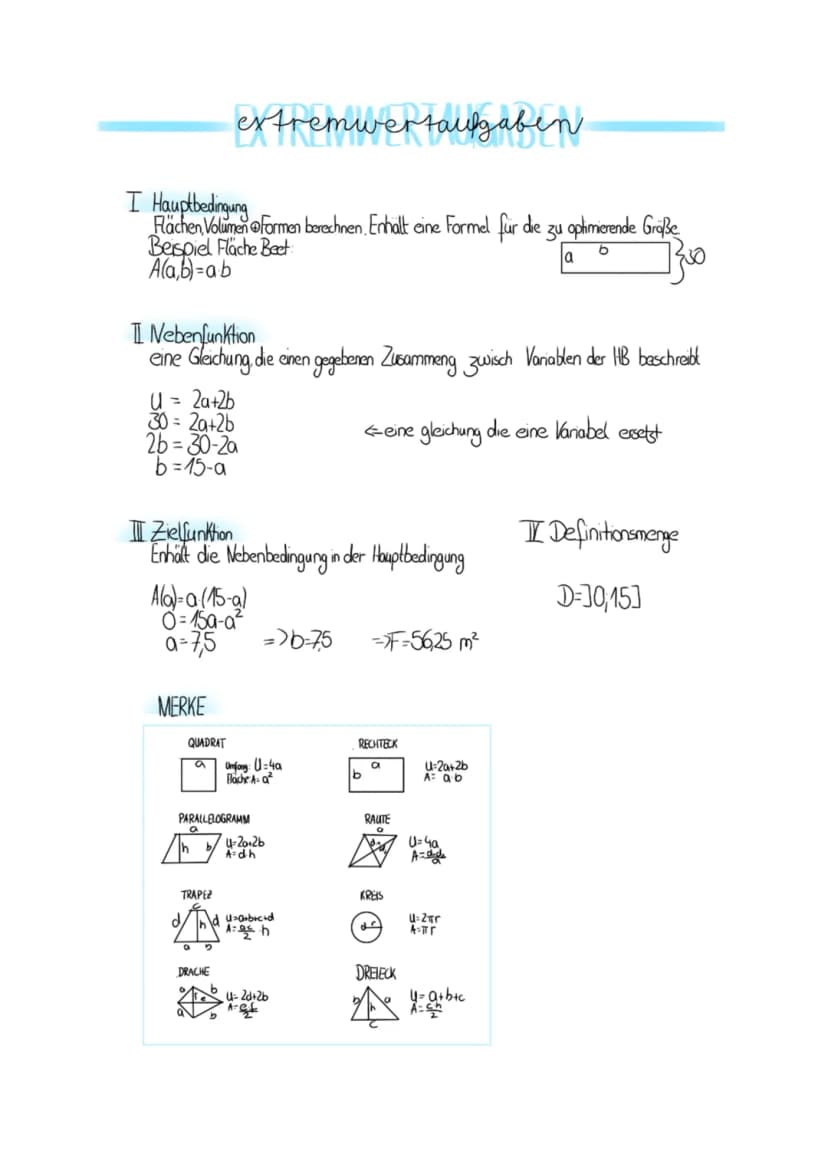 EXTREMWERTAUFGABEN
extremwertaufgaben
I Hauptbedingung
Flächen, Volumen Formen berechnen. Enhält eine Formel für die zu optimierende Größe.
Beispiel Fläche Beet:
A(a,b)=a·b
a b 30
II Nebenfunktion
eine Gleichung, die einen gegebenen Zusammeng zwisch Variablen der HB beschreibt
U = 2a+2b
30 = 2a+2b
←eine gleichung die eine Variabel ersetzt
2b = 30-2a
b = 15-a
III Zielfunktion
Enhält die Nebenbedingung in der Hauptbedingung
IV Definitionsmenge
A(a)=a·(15-a)
D=]0;15]
0=15a-a²
a=7,5 =>b=7,5 =>F=56,25 m²
MERKE
QUADRAT
a
Umfang: U=4a
Fläche: A=a²
RECHTECK
a
b
U=2a+2b
A= a·b
PARALLELOGRAMM
a
h b
U=2a+2b
RAUTE
a
U=4a
TRAPEZ
c
d h d
a
U=a+b+c+d
KREIS
U=2πr
A=πr
DRACHE
a b
f e
a b
DREIECK
b h a
c
U=a+b+c
A=ch/2